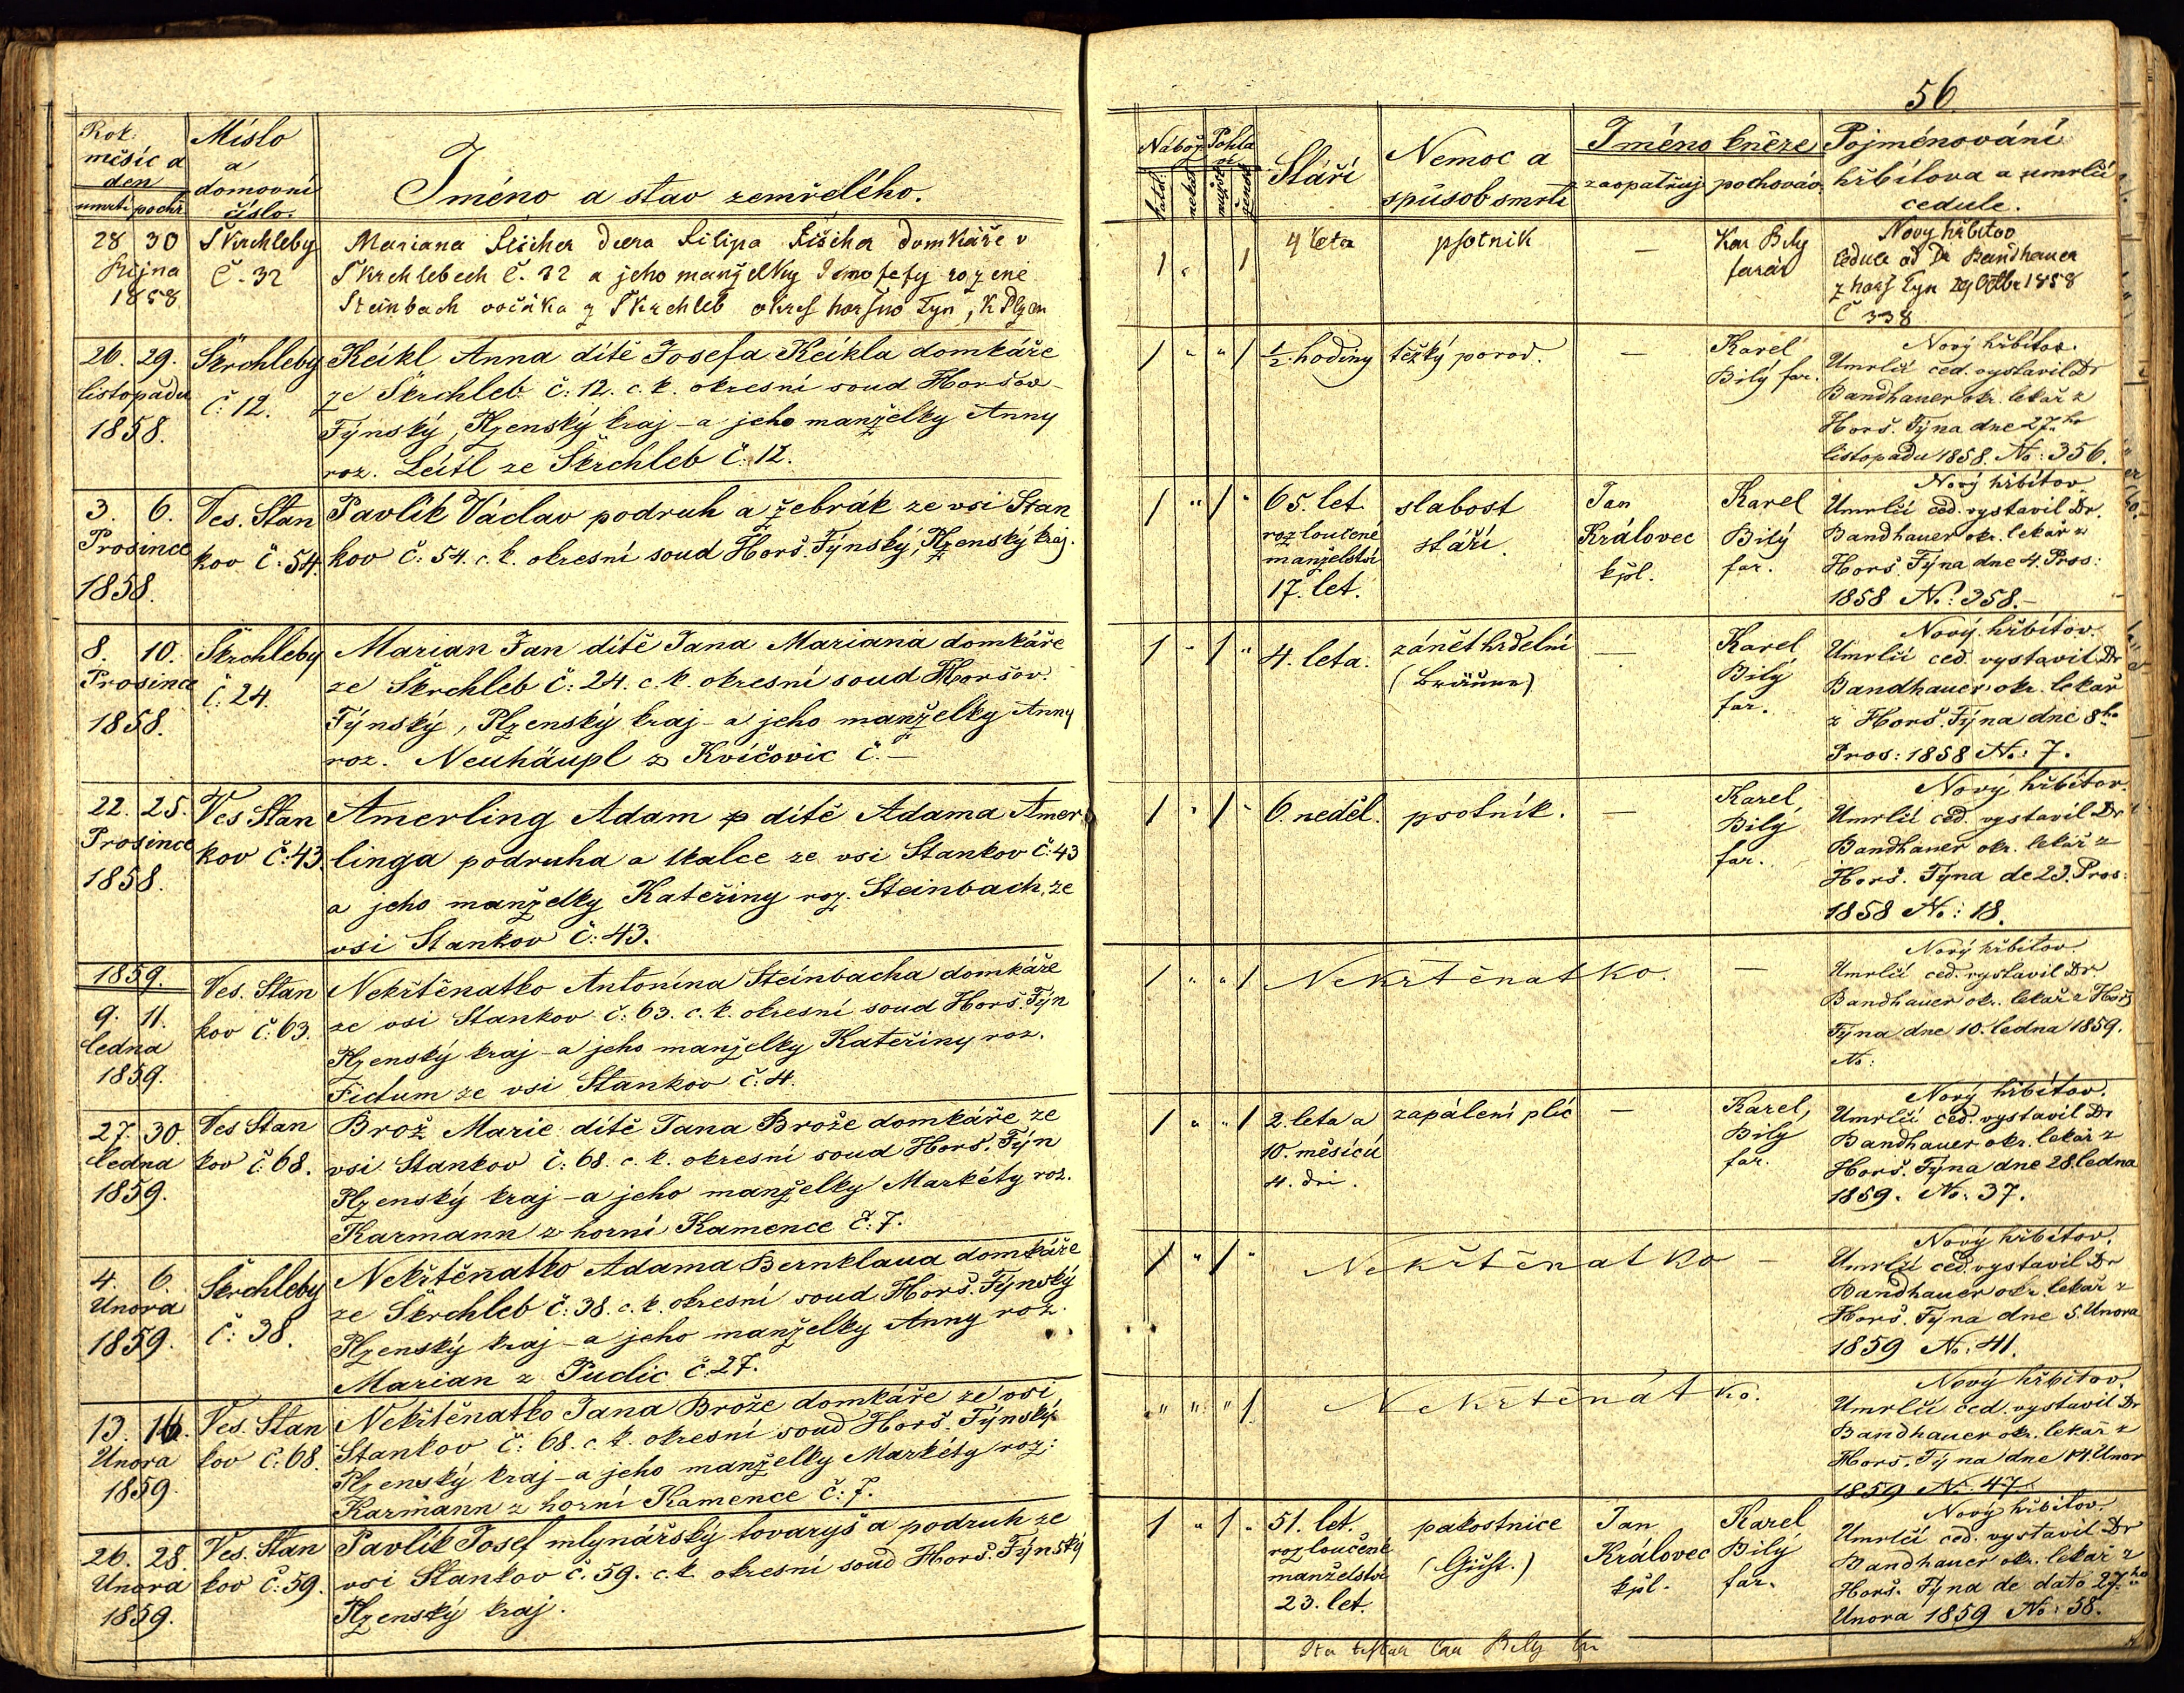 56
Rok
měsíc a
den
umrtí pochř.
Místo
a
domovní
číslo.
Jméno a stav zemřelého.
Nábož.
katol.
nekat.
Pohla
ví
mužsk.
žensk.
Stáří
Nemoc a
spůsob smrti
Jméno kněze
zaopatřuj. pochováv.
Pojménování
hřbitova a umrlčí
cedule.
28 30
Října
1858
Škrchleby
Č. 32
Mariana Fišcher dcera Filipa Fišcher domkáře v
Škrchlebech č. 32 a jeho manželky Josefy rozené
Steinbach z Škrchleb okres horšuo Tyn, K Plzen
1 " 1
4 leta
psotnik
—
Kar Bily
farář
Nový hřbitov
Cedule od Dr Bandhauer
z horš Tyn 29 Octbr 1858
Č 338
26. 29.
listopadu
1858.
Škrchleby
č: 12.
Keikl Anna dítě Josefa Keikla domkáře
ze Škrchleb č: 12. c. k. okresní soud Horšov-
Týnský, Plzenský kraj - a jeho manželky Anny
roz. Leitl ze Škrchleb č: 12.
1 " " 1
½ hodiny
těžký porod.
—
Karel
Bilý far.
Nový hřbitov.
Umrlčí ced. vystavil Dr
Bandhauer okr. lekař z
Horš. Týna dne 27ho
listopadu 1858. No: 356.
3. 6.
Prosince
1858.
Ves. Stan
kov č: 54.
Pavlík Václav podruh a žebrák ze vsi Stan
kov č: 54. c. k. okresní soud Horš. Týnský, Plzenský kraj.
1 " 1 "
65. let
rozloučené
manželství
17. let.
slabost
stáří.
Jan
Královec
kpl.
Karel
Bilý
far.
Nový hřbitov
Umrlčí ced. vystavil Dr.
Bandhauer okr. lekař z
Horš. Týna dne 4. Pros:
1858 No: 358.-
8. 10.
Prosince
1858.
Škrchleby
č: 24.
Marian Jan dítě Jana Mariana domkáře
ze Škrchleb č: 24. c. k. okresní soud Horšov.
Týnský, Plzenský kraj - a jeho manželky Anny
roz. Neuhäupl z Kvíčovic č. —
1 " 1 "
4. leta.
zánět hrdelní
(Bräune)
—
Karel
Bilý
far.
Nový hřbitov.
Umrlčí ced. vystavil Dr
Bandhauer okr. lekař
z Horš. Týna dne 8ho
Pros: 1858 No: 7.
22. 25.
Prosince
1858.
Ves Stan
kov č: 43.
Amerling Adam dítě Adama Amer
linga podruha a tkalce ze vsi Stankov č: 43
a jeho manželky Kateřiny roz. Steinbach, ze
vsi Stankov č: 43.
1 " 1 "
6. neděl.
psotník.
—
Karel
Bilý
far.
Nový hřbitov.
Umrlčí ced. vystavil Dr
Bandhauer okr. lekař z
Horš. Týna de 23. Pros:
1858 No: 18.
1859.
9. 11.
ledna
1859.
Ves. Stan
kov č: 63.
Nekřtěnatko Antonína Steinbacha domkáře
ze vsi Stankov č: 63. c. k. okresní soud Horš. Týn
Plzenský kraj - a jeho manželky Kateřiny roz.
Fictum ze vsi Stankov č: 4.
1 " " 1
Nekřtěnatko.
—
Nový hřbitov.
Umrlčí ced. vystavil Dr.
Bandhauer okr. lekař z Horš
Týna dne 10. ledna 1859.
No:
27. 30.
ledna
1859.
Ves Stan
kov č: 68.
Brož Marie dítě Jana Brože domkáře ze
vsi Stankov č: 68. c. k. okresní soud Horš. Týn
Plzenský kraj - a jeho manželky Markéty roz.
Karmann z horní Kamence č: 7.
1 " " 1
2. leta a
10. měsíců
4. dni.
zapálení plic
—
Karel,
Bilý
far.
Nový hřbitov.
Umrlčí ced. vystavil Dr
Bandhauer okr. lekař z
Horš. Týna dne 28. ledna
1859. No: 37.
4. 6.
Unora
1859.
Škrchleby
č: 38.
Nekřtěnatko Adama Bernklaua domkáře
ze Škrchleb č: 38. c. k. okresní soud Horš. Týnský
Plzenský kraj - a jeho manželky Anny roz.
Marian z Pudic č: 27.
1 " 1 "
Nekřtěnatko
—
Nový hřbitov.
Umrlčí ced. vystavil Dr
Bandhauer okr. lekař z
Horš. Týna dne 5. Unora
1859 No: 41.
13. 16.
Unora
1859.
Ves. Stan
kov č: 68.
Nekřtěnatko Jana Brože domkáře ze vsi
Stankov č: 68. c. k. okresní soud Horš. Týnský
Plzenský kraj - a jeho manželky Markéty roz:
Karmann z horní Kamence č: 7.
" " " 1
Nekřtěnátko.
Nový hřbitov.
Umrlčí ced. vystavil Dr
Bandhauer okr. lekař z
Horš. Týna dne 14. Unor
1859 No. 47.
26. 28.
Unora
1859.
Ves. Stan
kov č: 59.
Pavlík Josef mlynářský tovaryš a podruh ze
vsi Stankov č. 59. c. k. okresní soud Horš. Týnský
Plzenský kraj.
1 " 1 "
51. let.
rozloučené
manželství
23. let.
pakostnice
(Gicht.)
Jan
Královec
kpl.
Karel
Bilý
far.
Nový hřbitov.
Umrlčí ced. vystavil Dr
Bandhauer okr. lekař z
Horš. Týna de dato 27.ho
Unora 1859 No: 58.
Ita testor Car Bily